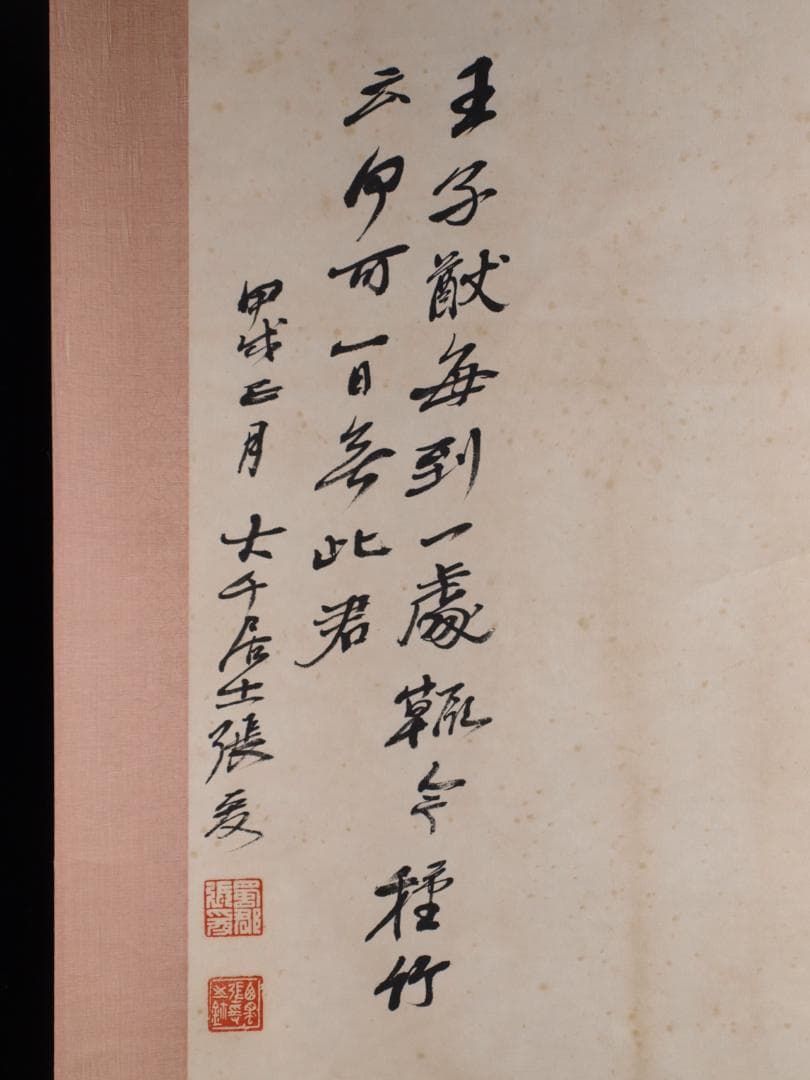 王子猷每到一處輒令種竹
云何可一日無此君
甲戌正月 大千居士張爰
蜀郡張爰